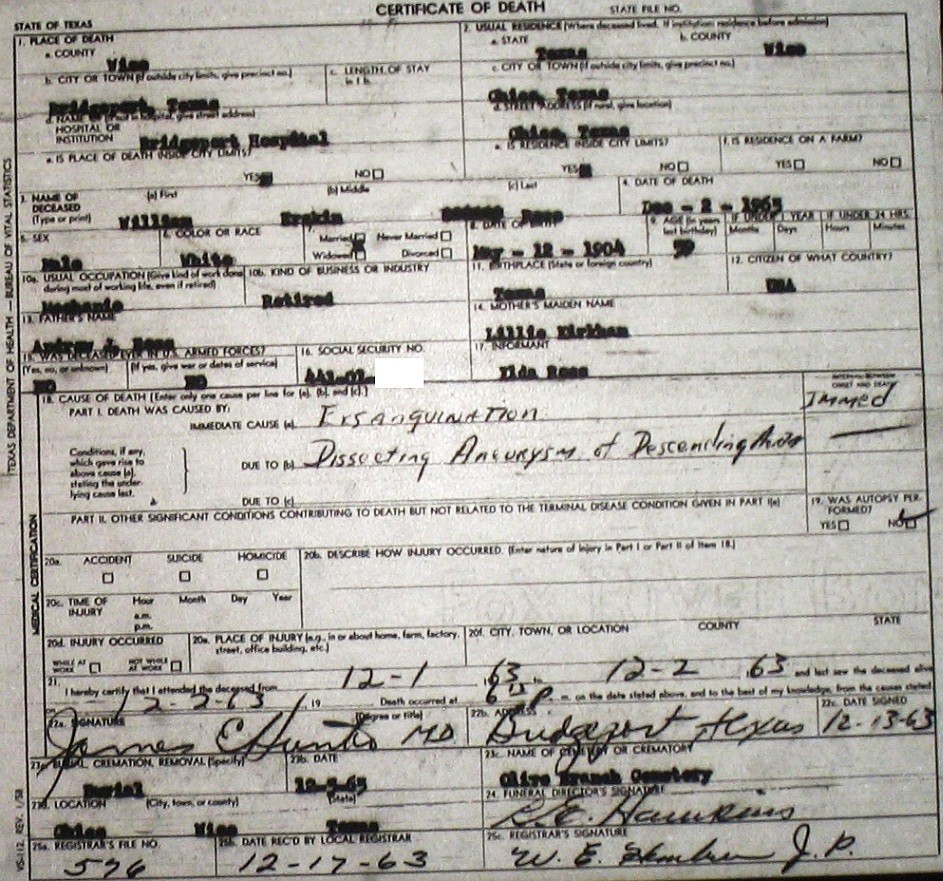 CERTIFICATE OF DEATH STATE FILE NO.
STATE OF TEXAS
1. PLACE OF DEATH
a. COUNTY
Wise
2. USUAL RESIDENCE (Where deceased lived. If institution: residence before admission)
a. STATE b. COUNTY
Texas Wise
b. CITY OR TOWN (If outside city limits, give precinct no.) c. LENGTH OF STAY in 1 b.
Bridgeport, Texas
c. CITY OR TOWN (If outside city limits, give precinct no.)
Chico, Texas
d. NAME OF (If not in hospital, give street address)
HOSPITAL OR
INSTITUTION Bridgeport Hospital
d. STREET ADDRESS (If rural, give location)
Chico, Texas
e. IS PLACE OF DEATH INSIDE CITY LIMITS?
YES NO
e. IS RESIDENCE INSIDE CITY LIMITS?
YES NO
f. IS RESIDENCE ON A FARM?
YES NO
3. NAME OF
DECEASED
(Type or print)
(a) First (b) Middle (c) Last
William Erskin Ross
4. DATE OF DEATH
Dec - 2 - 1963
5. SEX
Male
6. COLOR OR RACE
White
7. Married Never Married
Widowed Divorced
8. DATE OF BIRTH
May - 12 - 1904
9. AGE (In years last birthday)
59
IF UNDER 1 YEAR IF UNDER 24 HRS.
Months Days Hours Minutes
10a. USUAL OCCUPATION (Give kind of work done
during most of working life, even if retired)
Mechanic
10b. KIND OF BUSINESS OR INDUSTRY
Retired
11. BIRTHPLACE (State or foreign country)
Texas
12. CITIZEN OF WHAT COUNTRY?
USA
13. FATHER'S NAME
Andrew J. Ross
14. MOTHER'S MAIDEN NAME
Lillie Kirkham
15. WAS DECEASED EVER IN U.S. ARMED FORCES?
(Yes, no, or unknown) (If yes, give war or dates of service)
NO NO
16. SOCIAL SECURITY NO.
17. INFORMANT
Ross
18. CAUSE OF DEATH [Enter only one cause per line for (a), (b), and (c).]
INTERVAL BETWEEN
ONSET AND DEATH
PART I. DEATH WAS CAUSED BY:
IMMEDIATE CAUSE (a) Exsanguination Immed
Conditions, if any,
which gave rise to
above cause (a),
stating the under-
lying cause last.
DUE TO (b) Dissecting Aneurysm of Descending Aorta
DUE TO (c)
PART II. OTHER SIGNIFICANT CONDITIONS CONTRIBUTING TO DEATH BUT NOT RELATED TO THE TERMINAL DISEASE CONDITION GIVEN IN PART I(a)
19. WAS AUTOPSY PER-
FORMED?
YES NO
20a. ACCIDENT SUICIDE HOMICIDE
20b. DESCRIBE HOW INJURY OCCURRED. (Enter nature of injury in Part I or Part II of Item 18.)
20c. TIME OF
INJURY
Hour Month Day Year
a.m.
p.m.
20d. INJURY OCCURRED
WHILE AT WORK NOT WHILE AT WORK
20e. PLACE OF INJURY (e.g., in or about home, farm, factory,
street, office building, etc.)
20f. CITY, TOWN, OR LOCATION COUNTY STATE
21.
I hereby certify that I attended the deceased from 12-1 63 to 12-2 63 and last saw the deceased alive
12-2-63 19 Death occurred at 6 15 P. m. on the date stated above, and to the best of my knowledge, from the causes stated
22a. SIGNATURE (Degree or title)
James C Hunt MD
22b. ADDRESS
Bridgeport Texas
22c. DATE SIGNED
12-13-63
23a. BURIAL, CREMATION, REMOVAL (Specify)
Burial
23b. DATE
12-5-63
23c. NAME OF CEMETERY OR CREMATORY
Olive Branch Cemetery
23d. LOCATION (City, town, or county) (State)
Chico Wise Texas
24. FUNERAL DIRECTOR'S SIGNATURE
Hawkins
25a. REGISTRAR'S FILE NO.
576
25b. DATE REC'D BY LOCAL REGISTRAR
12-17-63
25c. REGISTRAR'S SIGNATURE
W. E. J. P.
TEXAS DEPARTMENT OF HEALTH — BUREAU OF VITAL STATISTICS
MEDICAL CERTIFICATION
VS-112, REV. 1/58